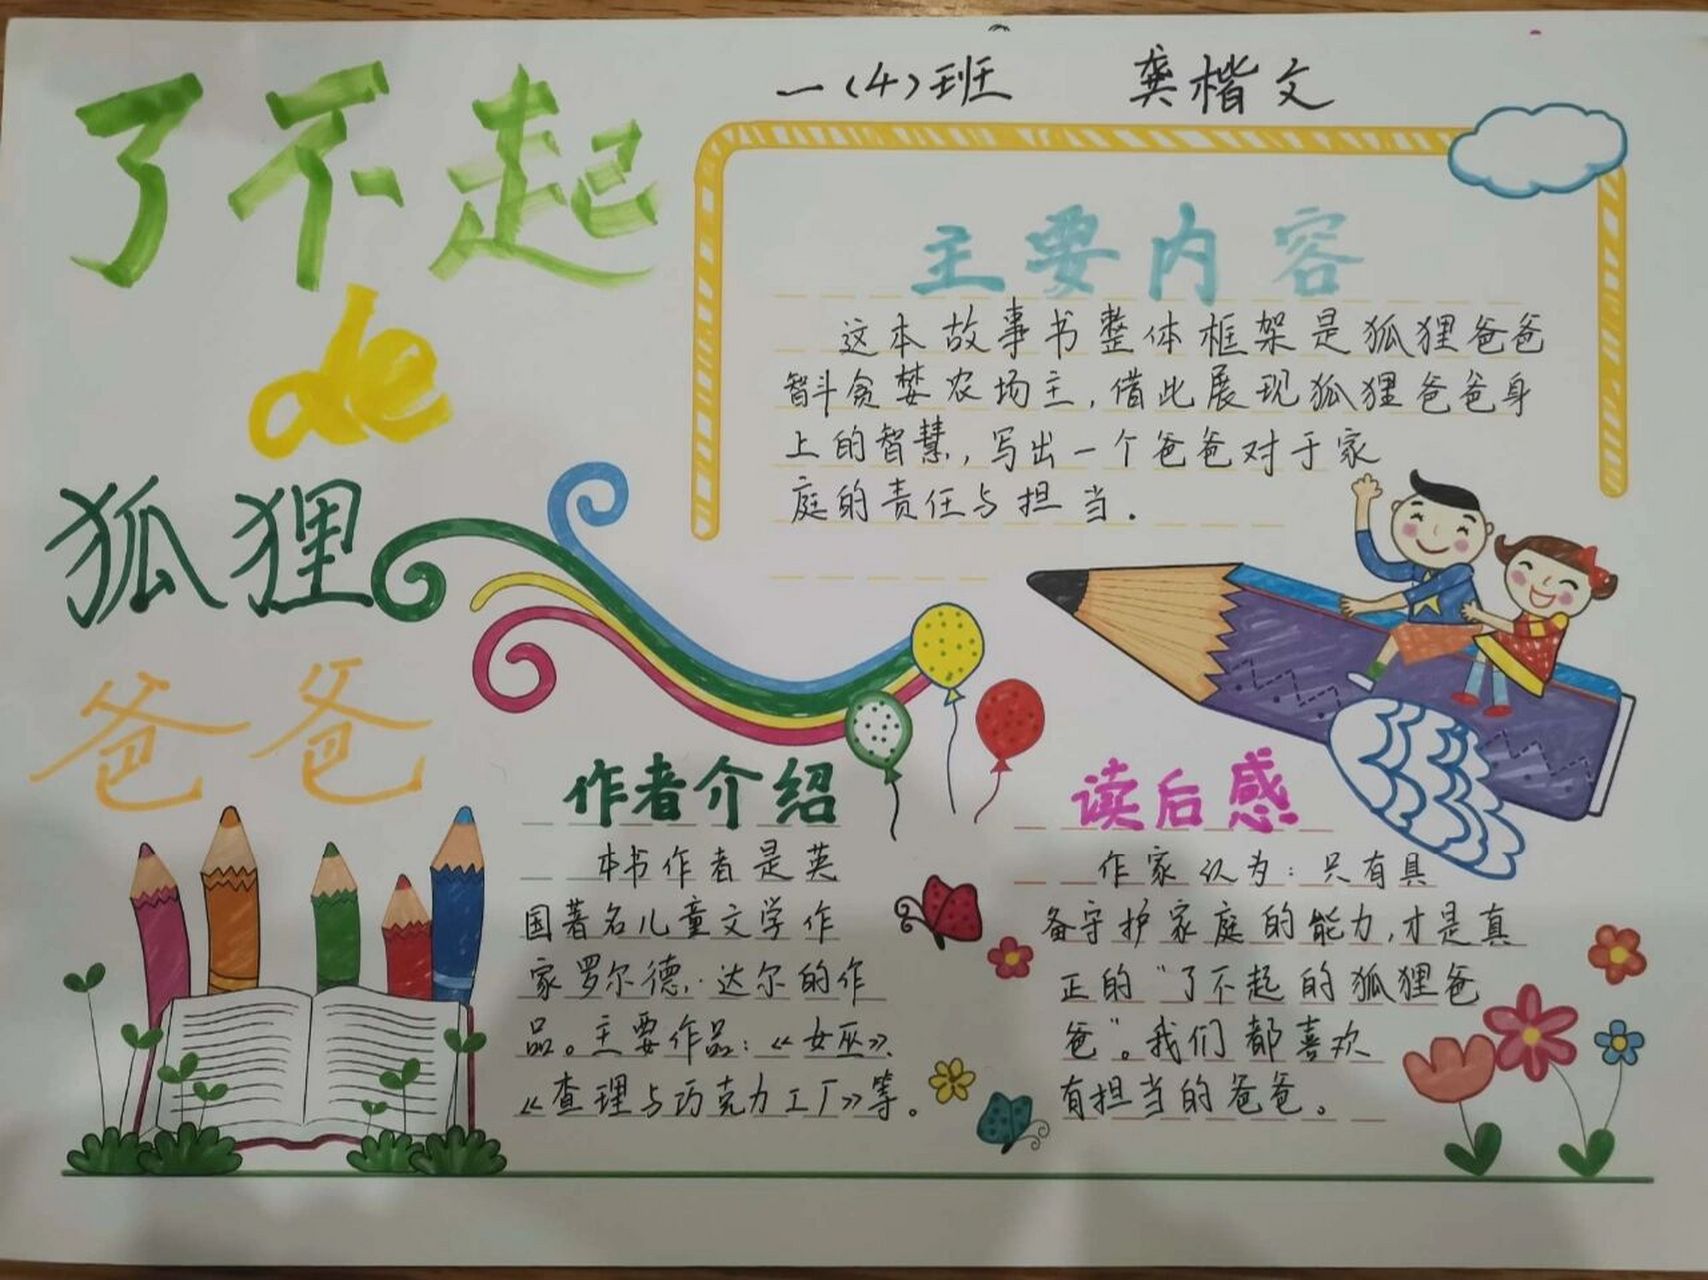 一(4)班 龚楷文
了不起
de
狐狸
爸爸
主要内容
这本故事书整体框架是狐狸爸爸
智斗贪婪农场主,借此展现狐狸爸爸身
上的智慧,写出一个爸爸对于家
庭的责任与担当.
作者介绍
本书作者是英
国著名儿童文学作
家罗尔德.·达尔的作
品。主要作品:《女巫》、
《查理与巧克力工厂》等。
读后感
作家认为:只有具
备守护家庭的能力,才是真
正的“了不起的狐狸爸
爸”。我们都喜欢
有担当的爸爸。